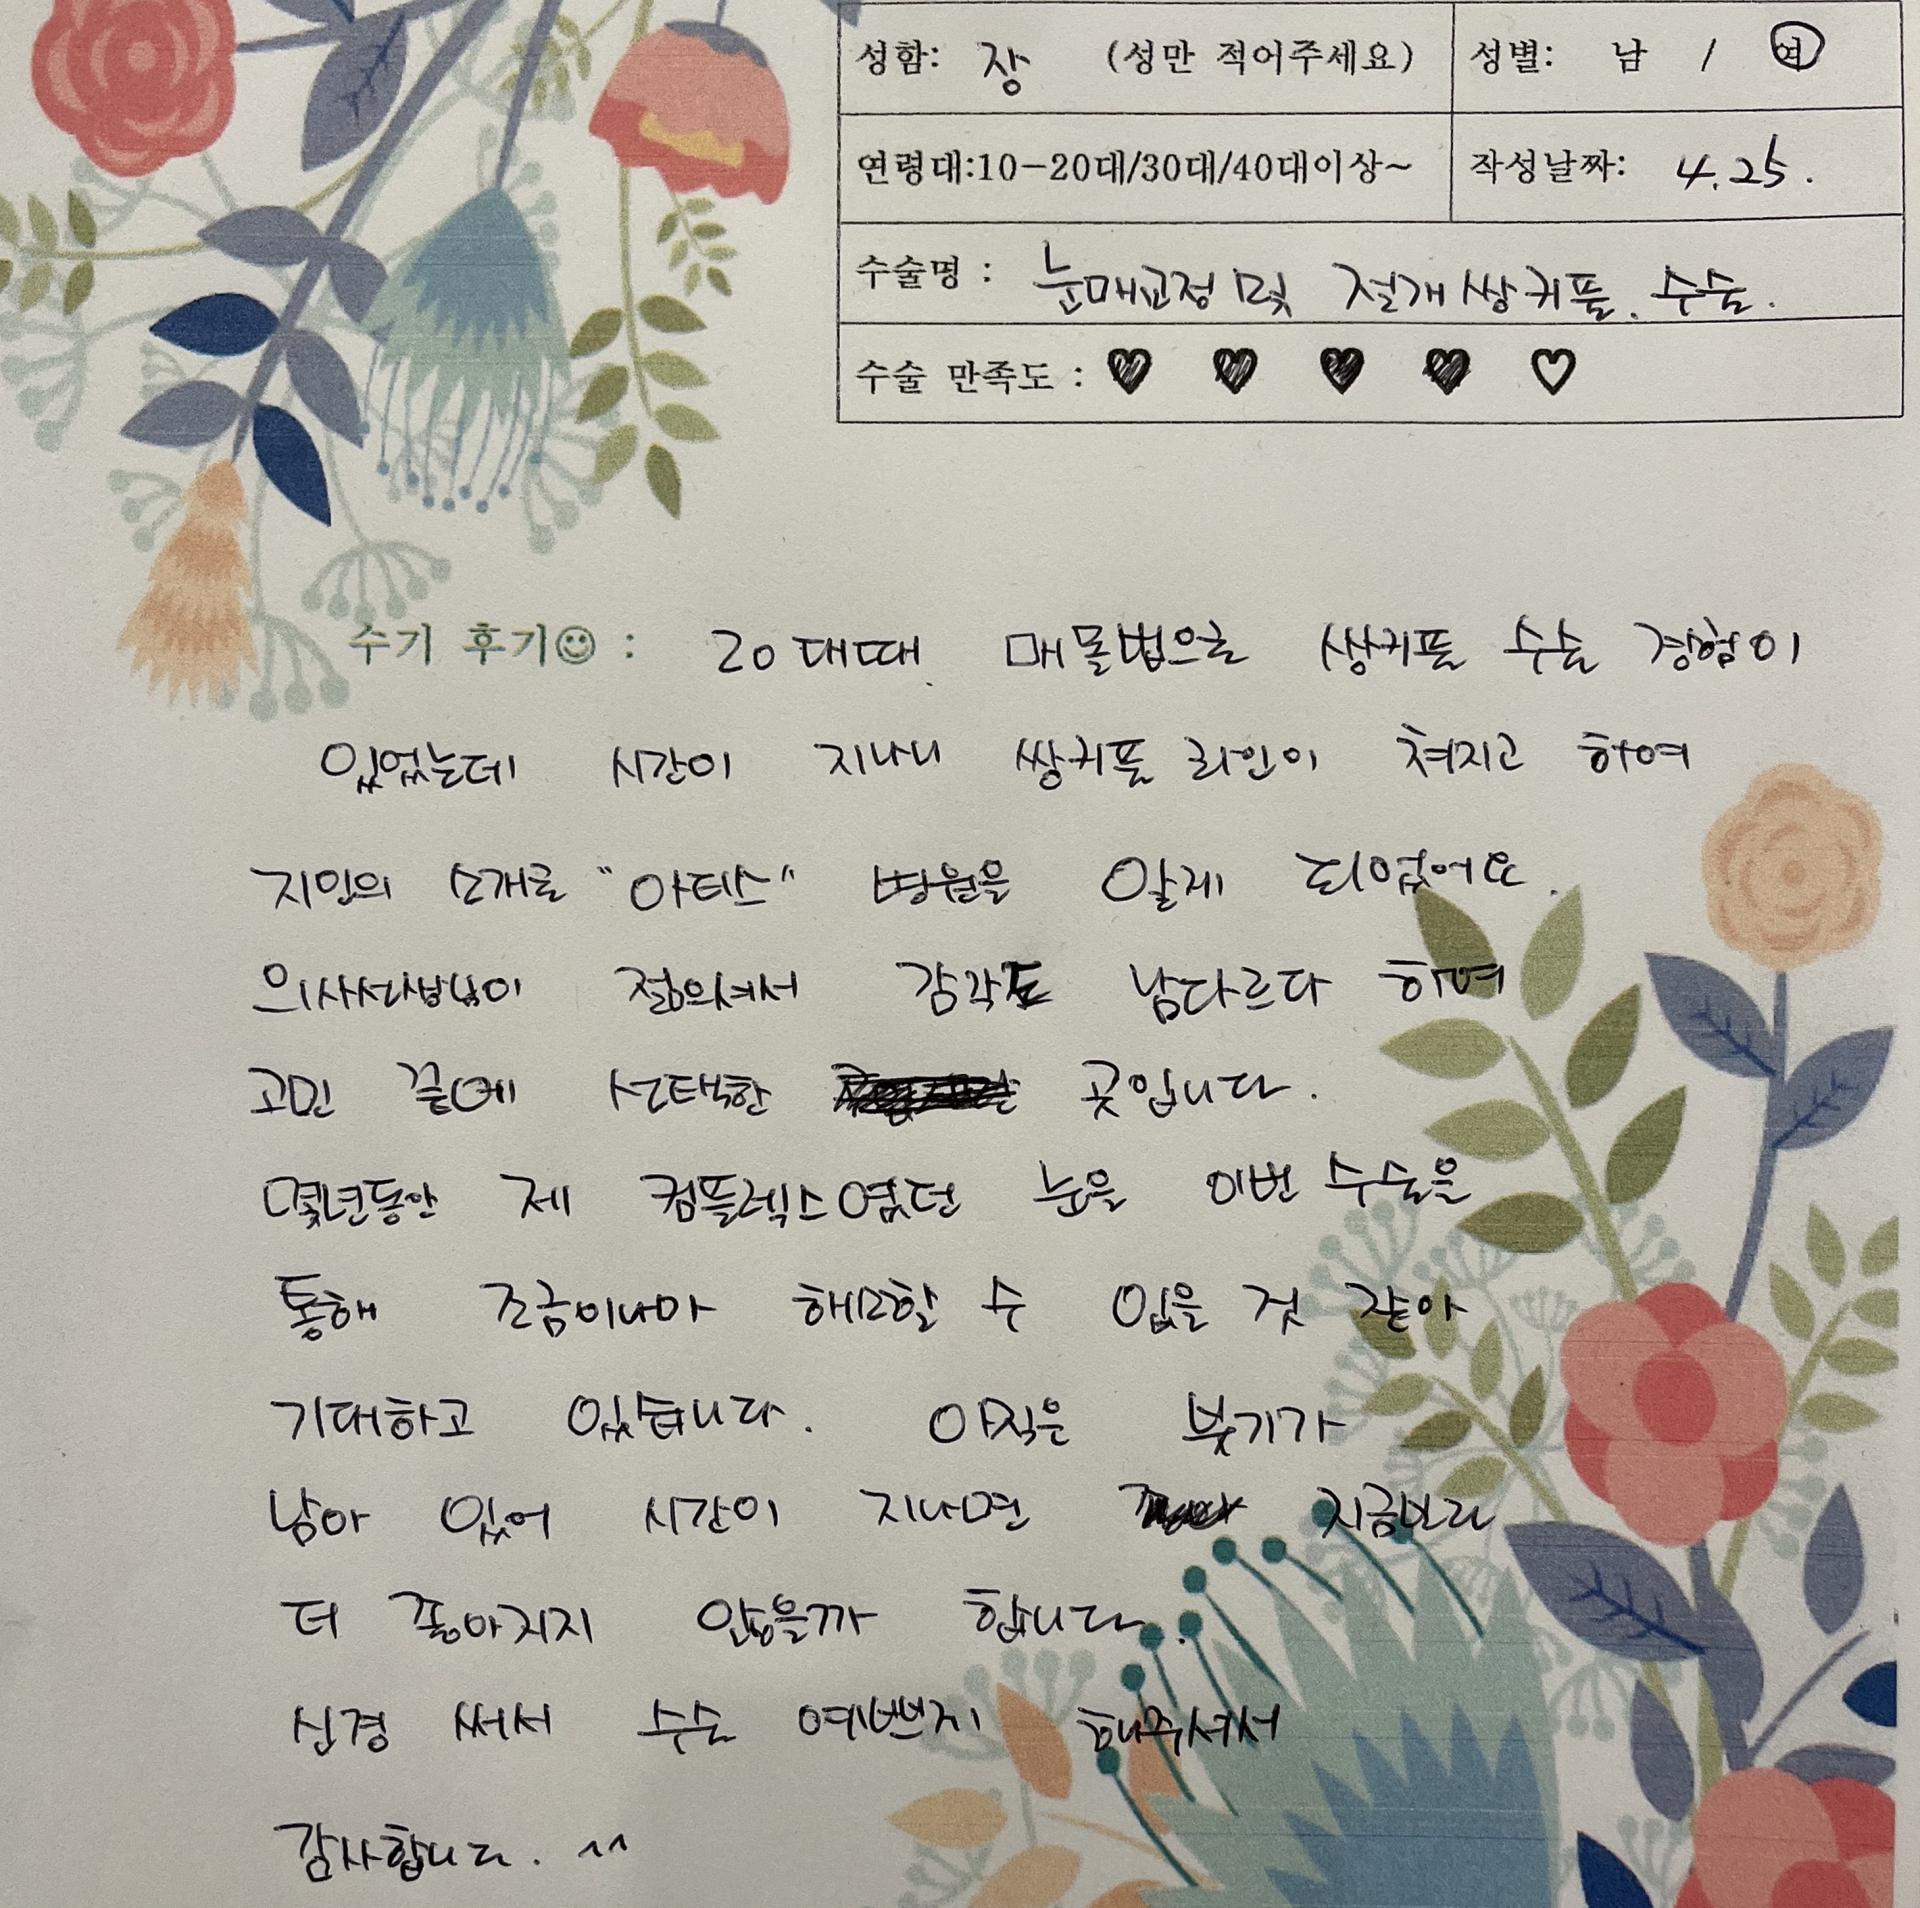 성함: 장 (성만 적어주세요) 성별: 남 / 여
연령대:10-20대/30대/40대이상~ 작성날짜: 4.25.
수술명 : 눈매교정 및 절개쌍커플. 수술.
수술 만족도 : ♥ ♥ ♥ ♥ ♡
수기 후기☺ : 20대때 매몰법으로 쌍커플 수술 경험이
있었는데 시간이 지나니 쌍커플 라인이 쳐지고 하여
지인의 소개로 "아테스" 병원을 알게 되었어요.
의사선생님이 젊으셔서 감각도 남다르다 하여
고민 끝에 선택한 곳입니다.
몇년동안 제 컴플렉스였던 눈을 이번 수술을
통해 조금이나마 해소할 수 있을 것 같아
기대하고 있습니다. 아직은 붓기가
남아 있어 시간이 지나면 지금보다
더 좋아지지 않을까 합니다.
신경 써서 수술 예쁘게 해주셔서
감사합니다. ^^